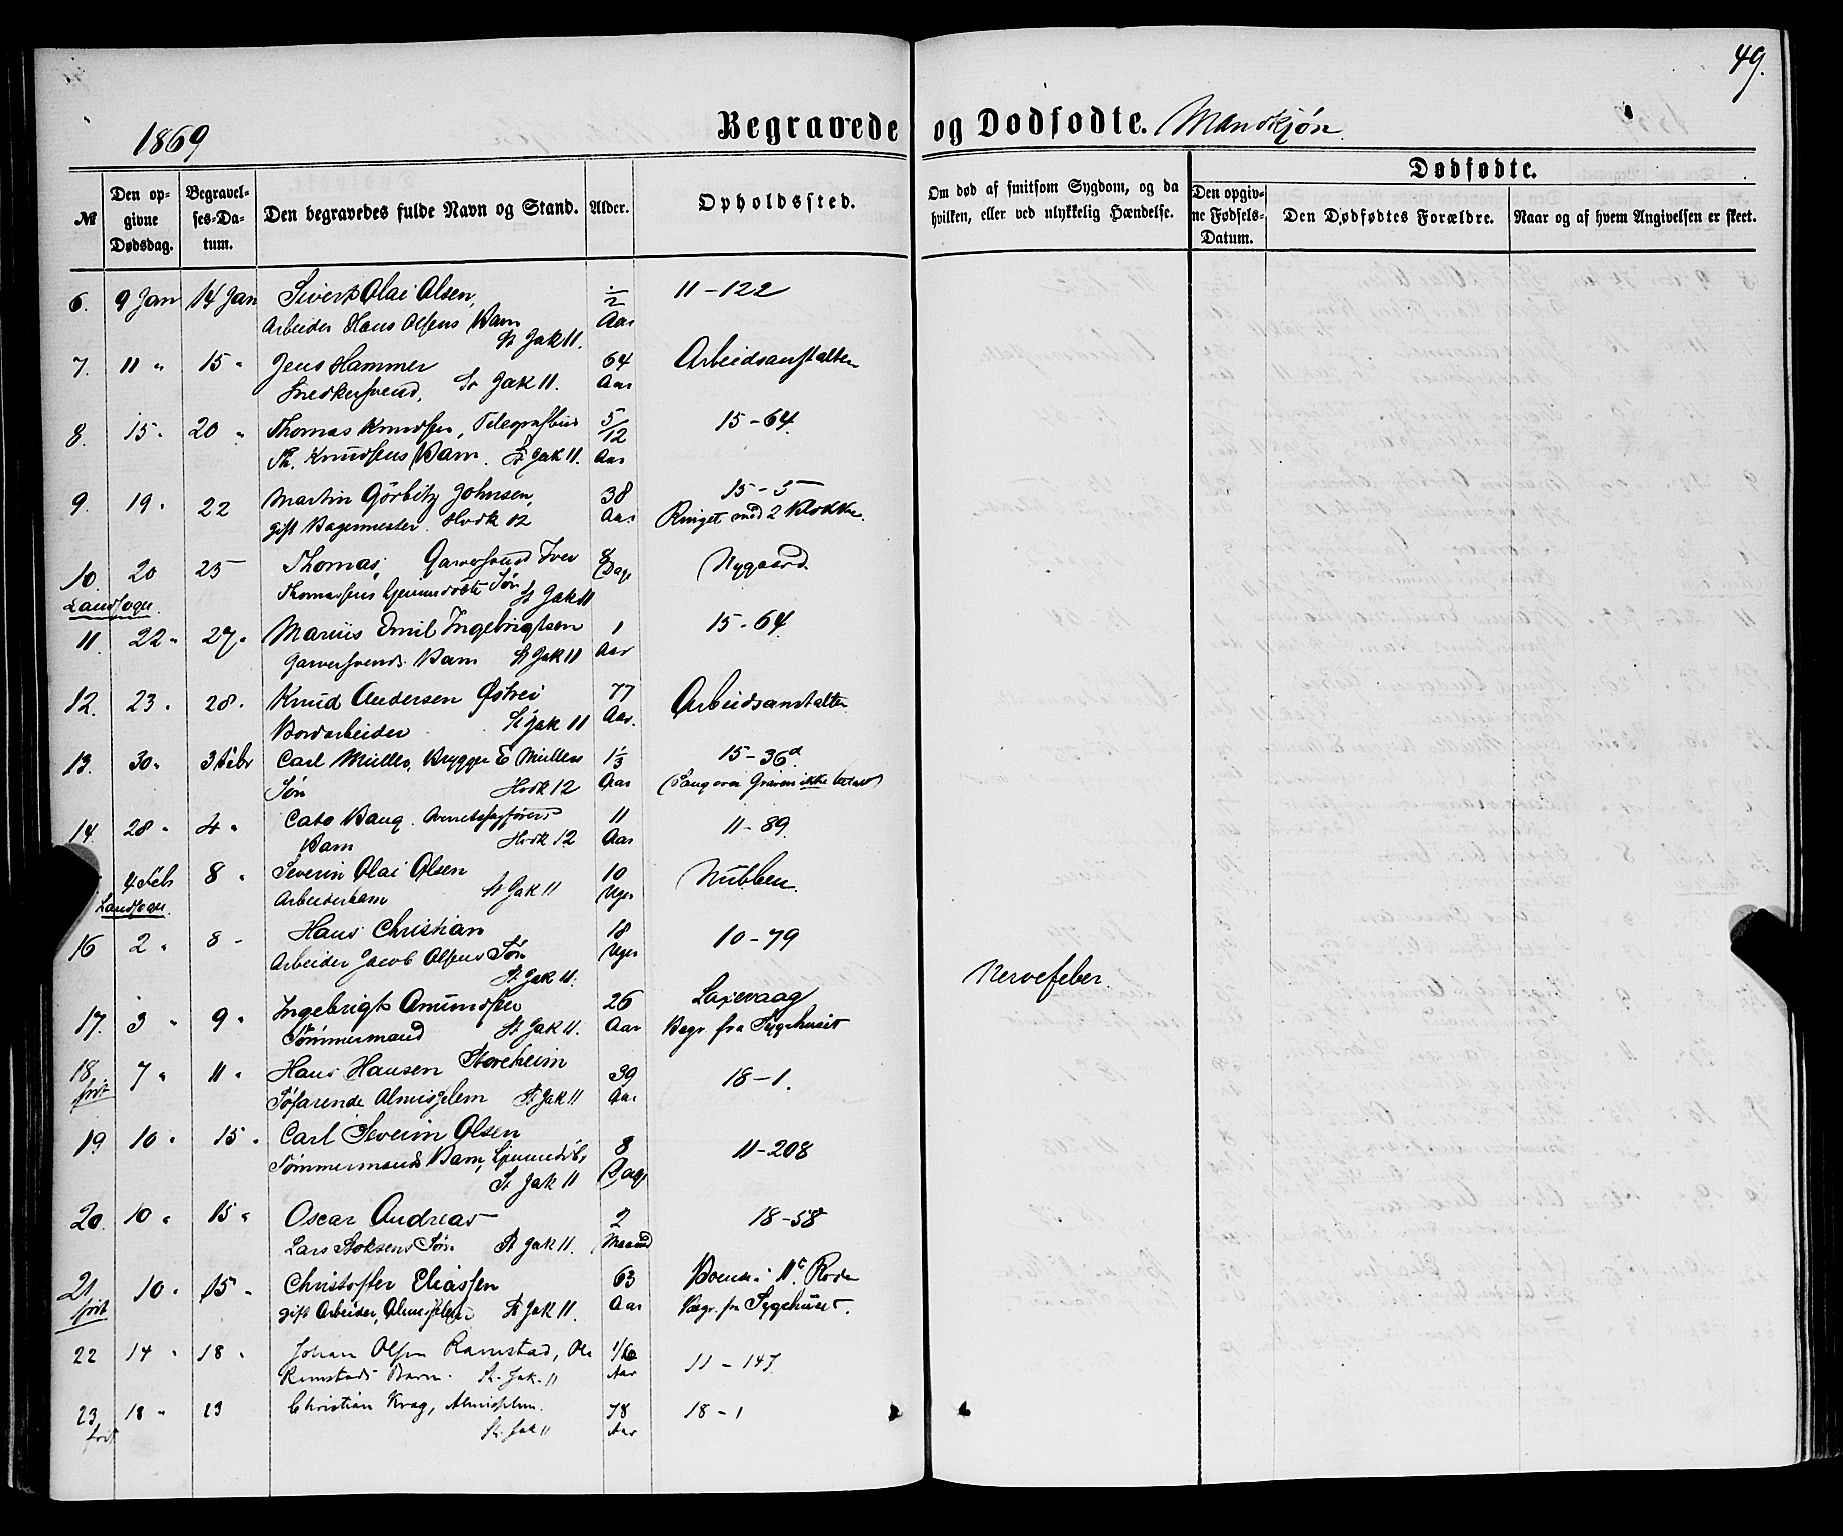 49.
1869
Begravede og Dødfødte. Mandkjøn.
№
Den opgivne Dødsdag.
Begravelses-Datum.
Den begravedes fulde Navn og Stand.
Alder.
Opholdssted.
Om død af smitsom Sygdom, og da hvilken, eller ved ulykkelig Hændelse.
Dødfødte.
Den opgivne Fødsels-Datum.
Den Dødfødtes Forældre.
Naar og af hvem Angivelsen er skeet.
6. 9 Jan 14 Jan Sivert Olai Olsen, 1/2 Aar 11-122
Arbeider Hans Olsens Barn
St Jak 11.
7. 11 " 15 " Jens Hammer 64 Aar Arbeidsanstalten
Snedkersvend, St Jak 11.
8. 15 " 20 " Thomas Knudsen, Telegrafbud 5/12 Aar 15-64.
Th. Knudsens Barn. St Jak 11.
9. 19 " 22 Martin Görbitz Johnsen, 38 Aar 15-5
gift Bagermester. Hvdk 12 Ringet med 2 Klokker.
10 20 25 Thomas, Garversvend Iver 8 Dage Nygaard.
Landsogn. Thomassens hjemmedøbte Søn St Jak 11
11. 22 " 27 " Marius Emil Ingebrigtsen 1 Aar 15-64.
Garversvends Barn St Jak 11
12. 23 " 28 " Knud Andersen Østrei 77 Aar. Arbeidsanstalten
Bordarbeider St Jak 11
13. 30 " 3 Febr Carl Müller, Brygger E Müllers 1 1/3 Aar 15-36d
Søn Hvdk 12 (Sang over Graven ikke betalt)
14. 28 " 4 " Cato Bang. 11 Aar 11-89.
Barn Hvdk 12
4 Febr 8 " Severin Olai Olsen 10 Uger Nubben.
Landsogn. Arbeiderbarn St Jak 11
16 2 " 8 " Hans Christian 18 Uger 10-79
Arbeider Jacob Olsens Søn
St Jak 11.
17. 3 " 9 " Ingebrigt Amundsen 26 Aar Laxevaag Nervefeber.
Tømmermand St Jak 11. Begr. fra Sygehuset
18 7 " 11 " Hans Hansen Storeheim 39 Aar 18-1.
frit Søfarende Almisselem St Jak 11
19 10 " 15 " Carl Severin Olsen 8 Dage 11-208
Tømmermands Barn, hjemmedøbt
St Jak 11
20. 10 " 15 " Oscar Andreas 2 Maaned 18-58
Lars Søn St Jak 11.
21 10 " 15 " Christoffer Eliassen 63 Aar Boende i 11te Rode
frit gift Arbeider, Almisselem St Jak 11. Begr. fra Sygehuset.
22 14 " 18 " Johan Olsen Ramstad, Ole 1/6 Aar 11-147
Ramstads Barn. St. Jak. 11
23 18 " 23 Christian Krag, Almisselem. 78 Aar 18-1
frit St. Jak 11